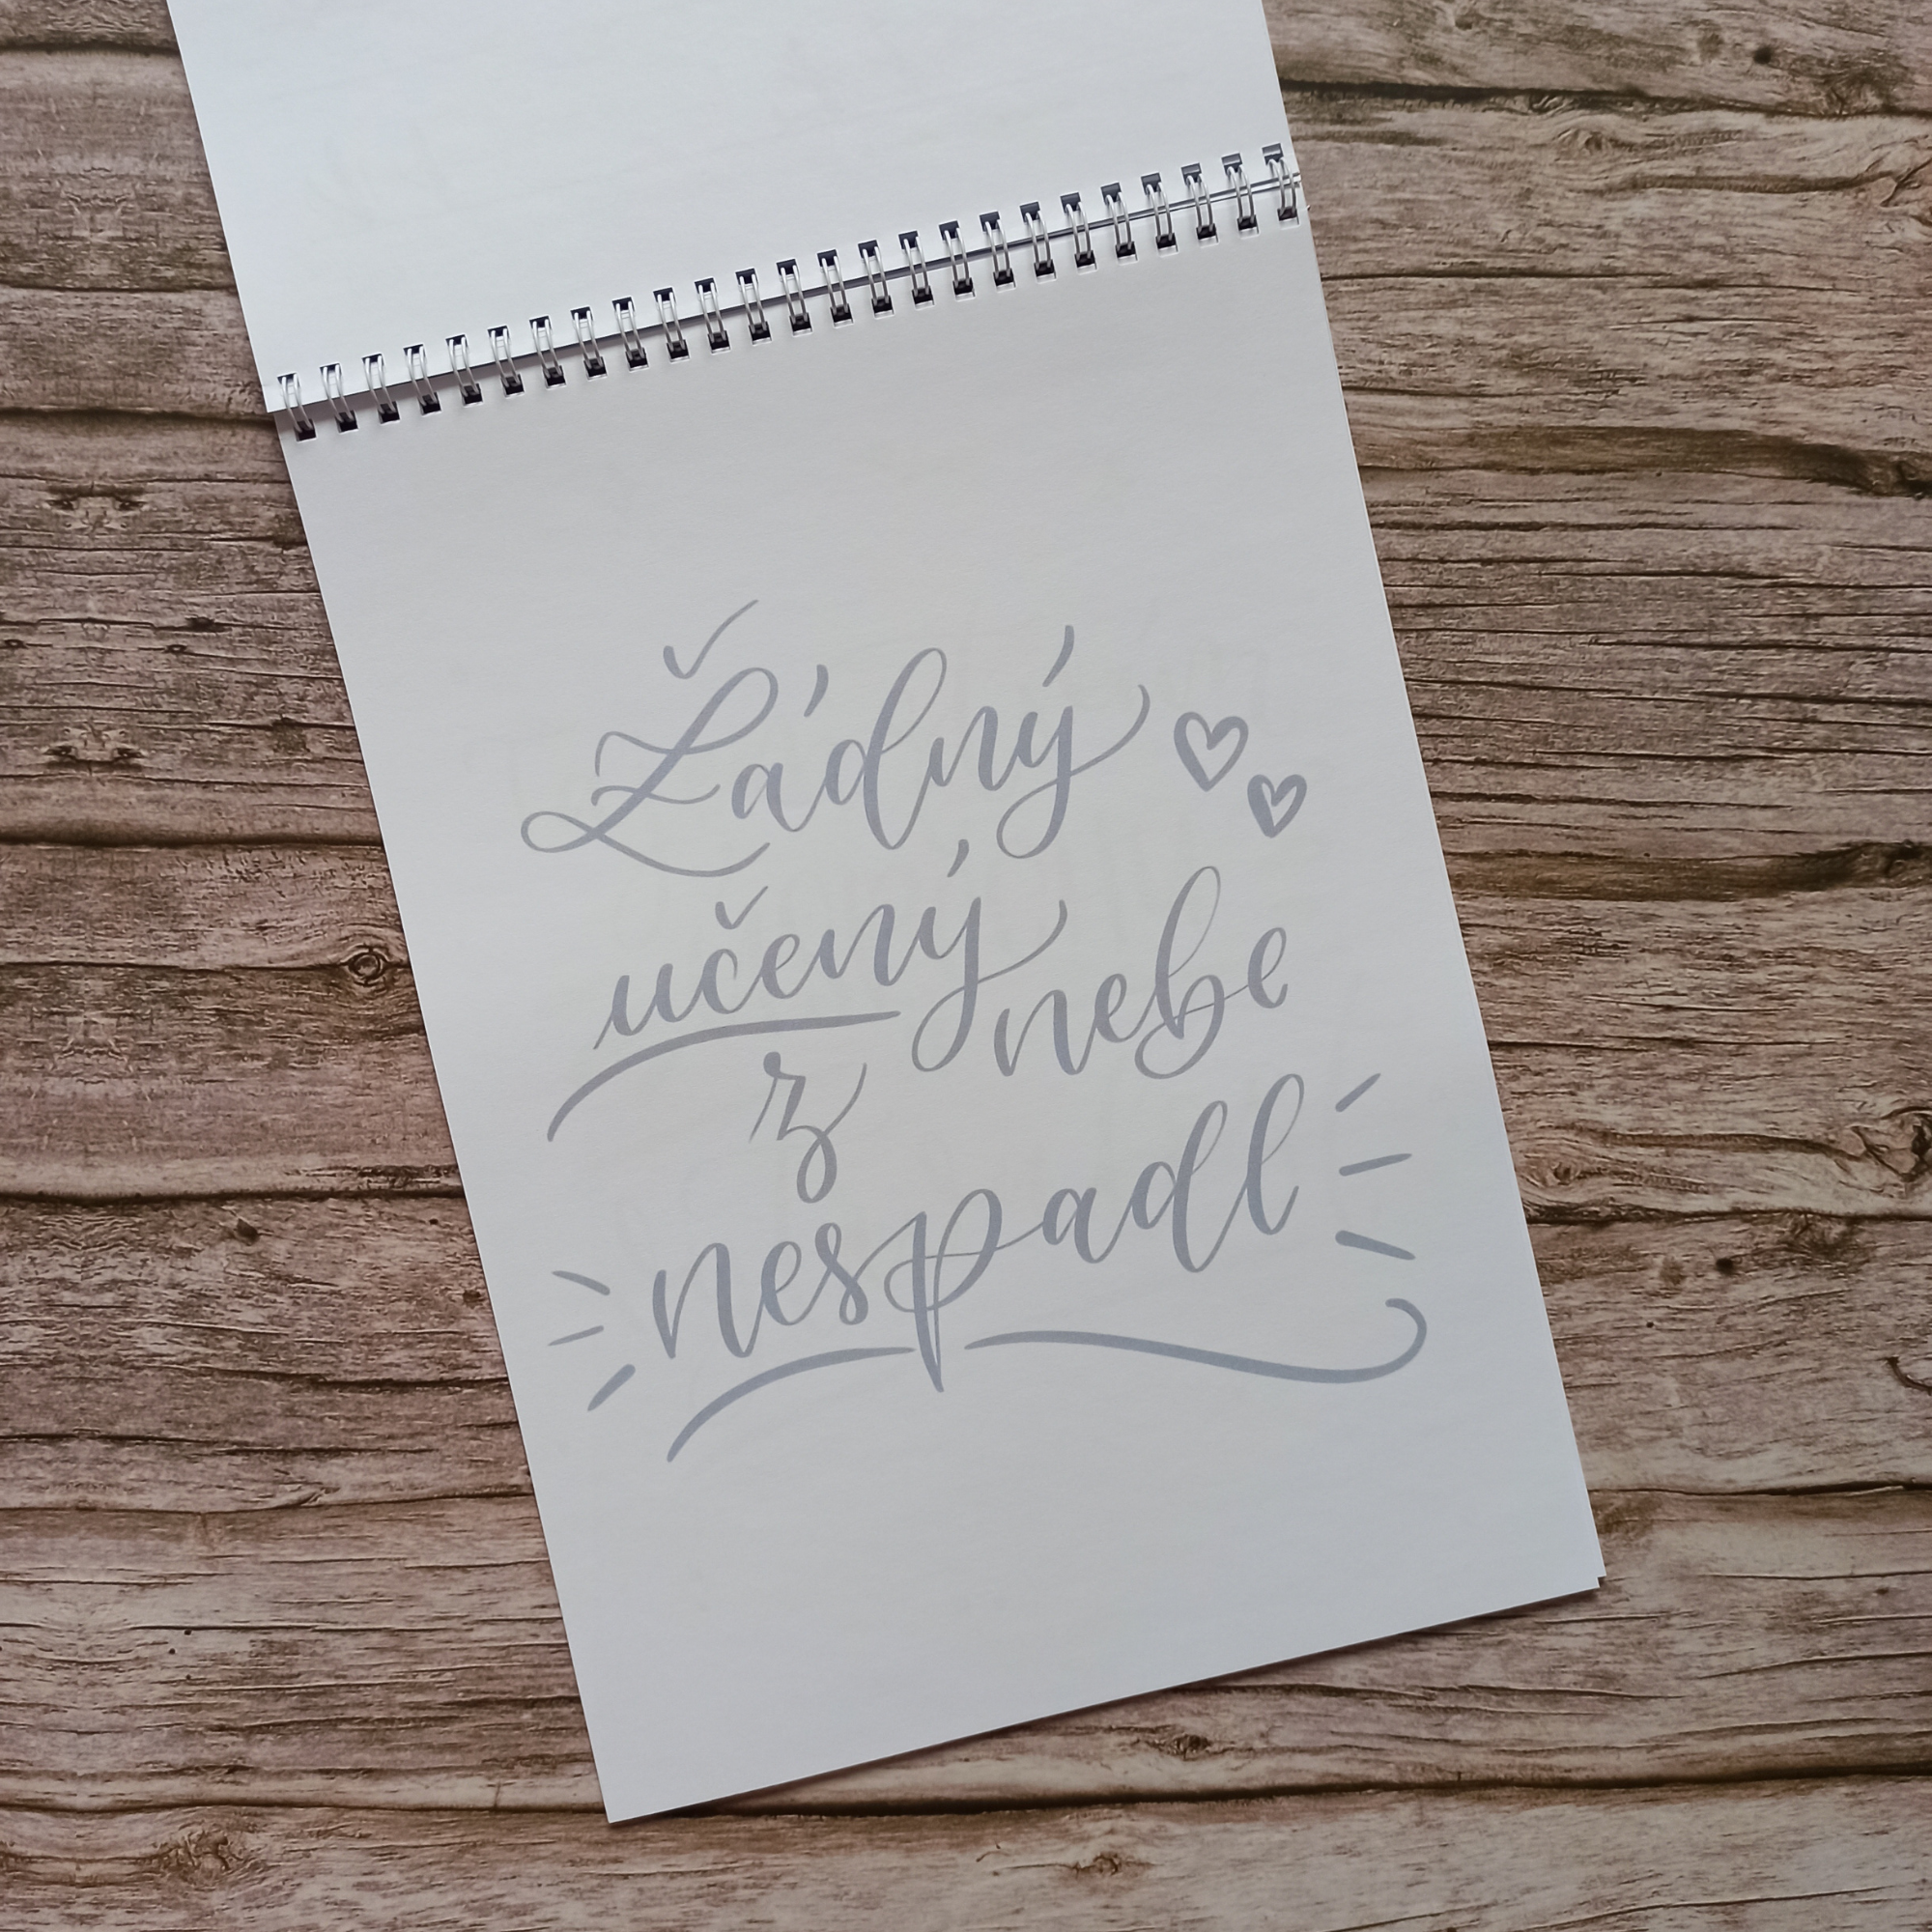 Žádný
učený
z nebe
nespadl